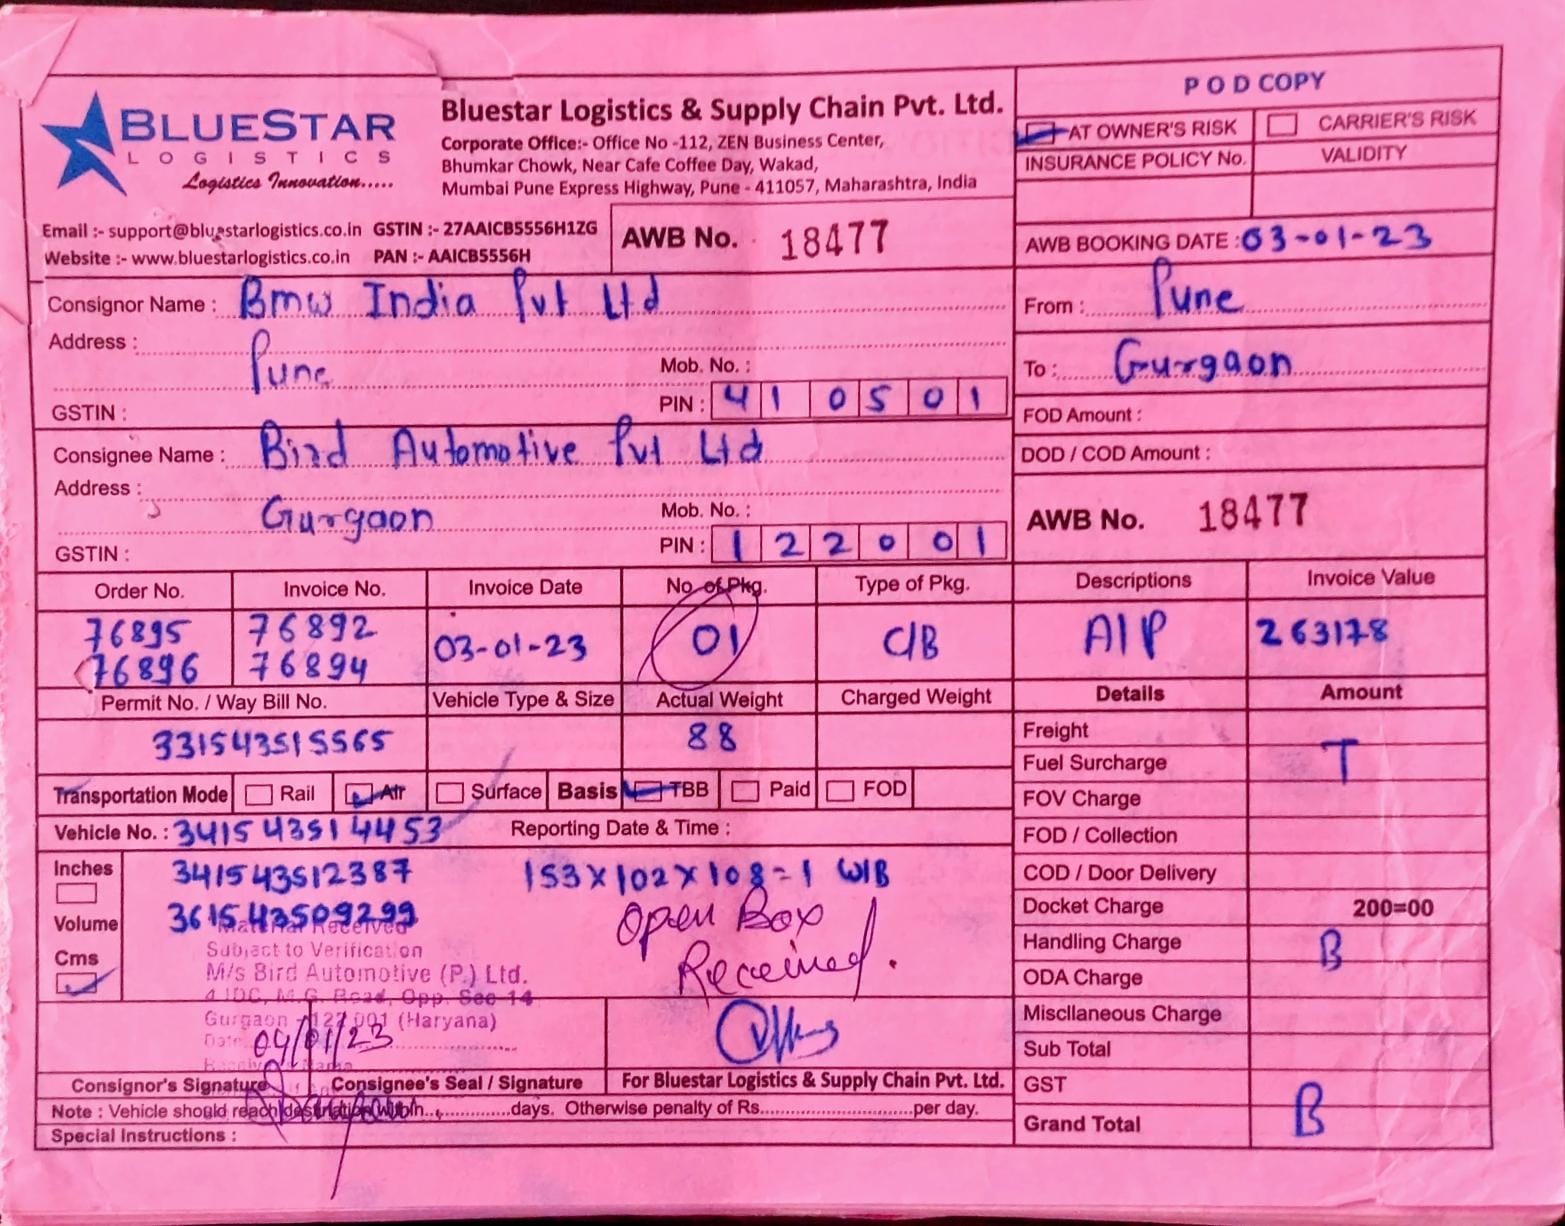 POD COPY
BLUESTAR
LOGISTICS
Logistics Innovation.....
Bluestar Logistics & Supply Chain Pvt. Ltd.
Corporate Office:- Office No -112, ZEN Business Center,
Bhumkar Chowk, Near Cafe Coffee Day, Wakad,
Mumbai Pune Express Highway, Pune - 411057, Maharashtra, India
AT OWNER'S RISK CARRIER'S RISK
INSURANCE POLICY No. VALIDITY
Email :- support@bluestarlogistics.co.in GSTIN :- 27AAICB5556H1ZG
Website :- www.bluestarlogistics.co.in PAN :- AAICB5556H
AWB No. 18477
AWB BOOKING DATE : 03-01-23
Consignor Name : Bmw India Pvt Ltd
Address :
Pune
Mob. No. :
GSTIN :
PIN : 410501
From : Pune
To : Gurgaon
FOD Amount :
DOD / COD Amount :
Consignee Name : Bird Automotive Pvt Ltd
Address :
Gurgaon
Mob. No. :
GSTIN :
PIN : 122001
AWB No. 18477
Order No. Invoice No. Invoice Date No of Pkg. Type of Pkg. Descriptions Invoice Value
76895 76892 03-01-23 01 C/B A/P 263178
76896 76894
Permit No. / Way Bill No. Vehicle Type & Size Actual Weight Charged Weight Details Amount
331543515565 88
Freight
Fuel Surcharge T
FOV Charge
FOD / Collection
COD / Door Delivery
Docket Charge 200=00
Handling Charge B
ODA Charge
Miscllaneous Charge
Sub Total
GST
Grand Total B
Transportation Mode Rail Air Surface Basis TBB Paid FOD
Vehicle No. : 341543514453 Reporting Date & Time :
Inches 341543512387 153x102x108=1 W/B
Volume 361543509299
Cms
Open Box
Received.
Material Received
Subject to Verification
M/s Bird Automotive (P.) Ltd.
4 IDC, M.G. Road, Opp. Sec 14
Gurgaon - 122 001 (Haryana)
Date 04/01/23
Consignor's Signature Consignee's Seal / Signature For Bluestar Logistics & Supply Chain Pvt. Ltd.
Note : Vehicle should reach destination within...............days. Otherwise penalty of Rs...............................per day.
Special Instructions :